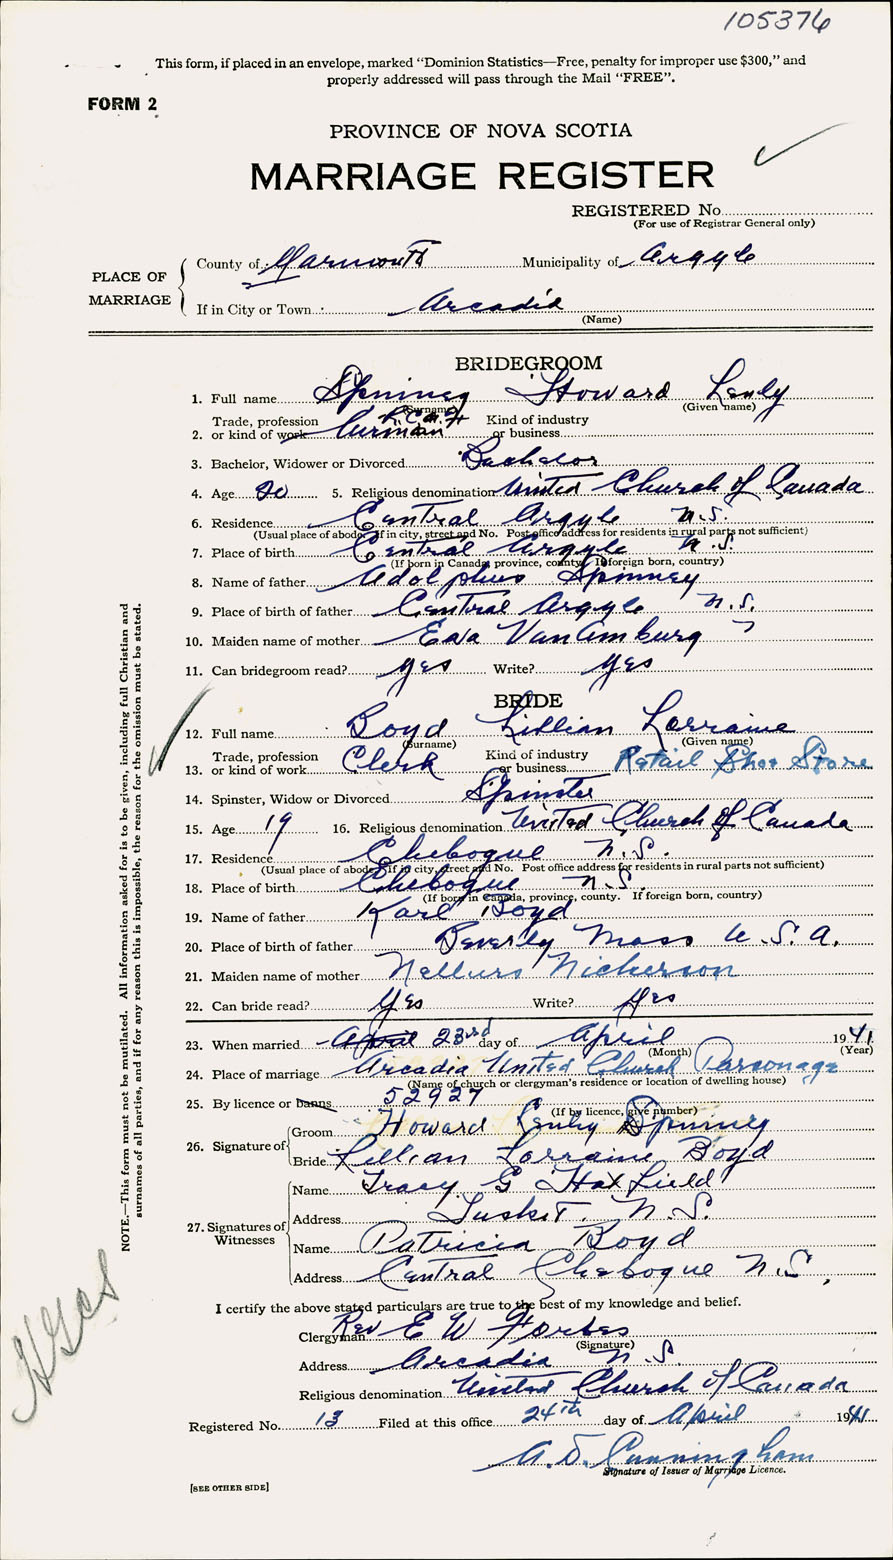 105376
This form, if placed in an envelope, marked “Dominion Statistics—Free, penalty for improper use $300,” and
properly addressed will pass through the Mail “FREE”.
FORM 2
PROVINCE OF NOVA SCOTIA
MARRIAGE REGISTER
REGISTERED No.
(For use of Registrar General only)
PLACE OF MARRIAGE
County of Yarmouth Municipality of Argyle
If in City or Town Arcadia
(Name)
BRIDEGROOM
1. Full name Spinney Howard Lenly
(Surname) (Given name)
2. Trade, profession or kind of work Airman R.C.A.F. Kind of industry or business
3. Bachelor, Widower or Divorced Bachelor
4. Age 20 5. Religious denomination United Church of Canada
6. Residence Central Argyle N.S.
(Usual place of abode. If in city, street and No. Post office address for residents in rural parts not sufficient)
7. Place of birth Central Argyle N.S.
(If born in Canada, province, county. If foreign born, country)
8. Name of father Adolphus Spinney
9. Place of birth of father Central Argyle N.S.
10. Maiden name of mother Eva VanAmburg
11. Can bridegroom read? yes Write? yes
BRIDE
12. Full name Boyd Lillian Lorraine
(Surname) (Given name)
13. Trade, profession or kind of work Clerk Kind of industry or business Retail Shoe Store
14. Spinster, Widow or Divorced Spinster
15. Age 19 16. Religious denomination United Church of Canada
17. Residence Chebogue N.S.
(Usual place of abode. If in city, street and No. Post office address for residents in rural parts not sufficient)
18. Place of birth Chebogue N.S.
(If born in Canada, province, county. If foreign born, country)
19. Name of father Karl Boyd
20. Place of birth of father Beverly Mass U.S.A.
21. Maiden name of mother Nickerson
22. Can bride read? Yes Write? Yes
23. When married April 23rd day of April 1941.
(Month) (Year)
24. Place of marriage Arcadia United Church Parsonage
(Name of church or clergyman's residence or location of dwelling house)
25. By licence or banns 52927
(If by licence, give number)
26. Signature of
Groom Howard Lenly Spinney
Bride Lillian Lorraine Boyd
27. Signatures of Witnesses
Name Tracy G Hatfield
Address Tusket. N.S.
Name Patricia Boyd
Address Central Chebogue N.S.,
I certify the above stated particulars are true to the best of my knowledge and belief.
Clergyman Rev E W Forbes
(Signature)
Address Arcadia N.S.
Religious denomination United Church of Canada
Registered No. 13 Filed at this office 24th day of April 1941.
A. D. Cunningham
Signature of Issuer of Marriage Licence.
[SEE OTHER SIDE]
NOTE.—This form must not be mutilated. All information asked for is to be given, including full Christian and
surnames of all parties, and if for any reason this is impossible, the reason for the omission must be stated.